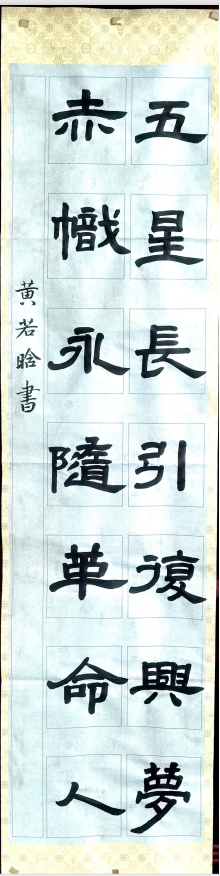 五星長引復興夢
赤幟永隨革命人
黄若晗書